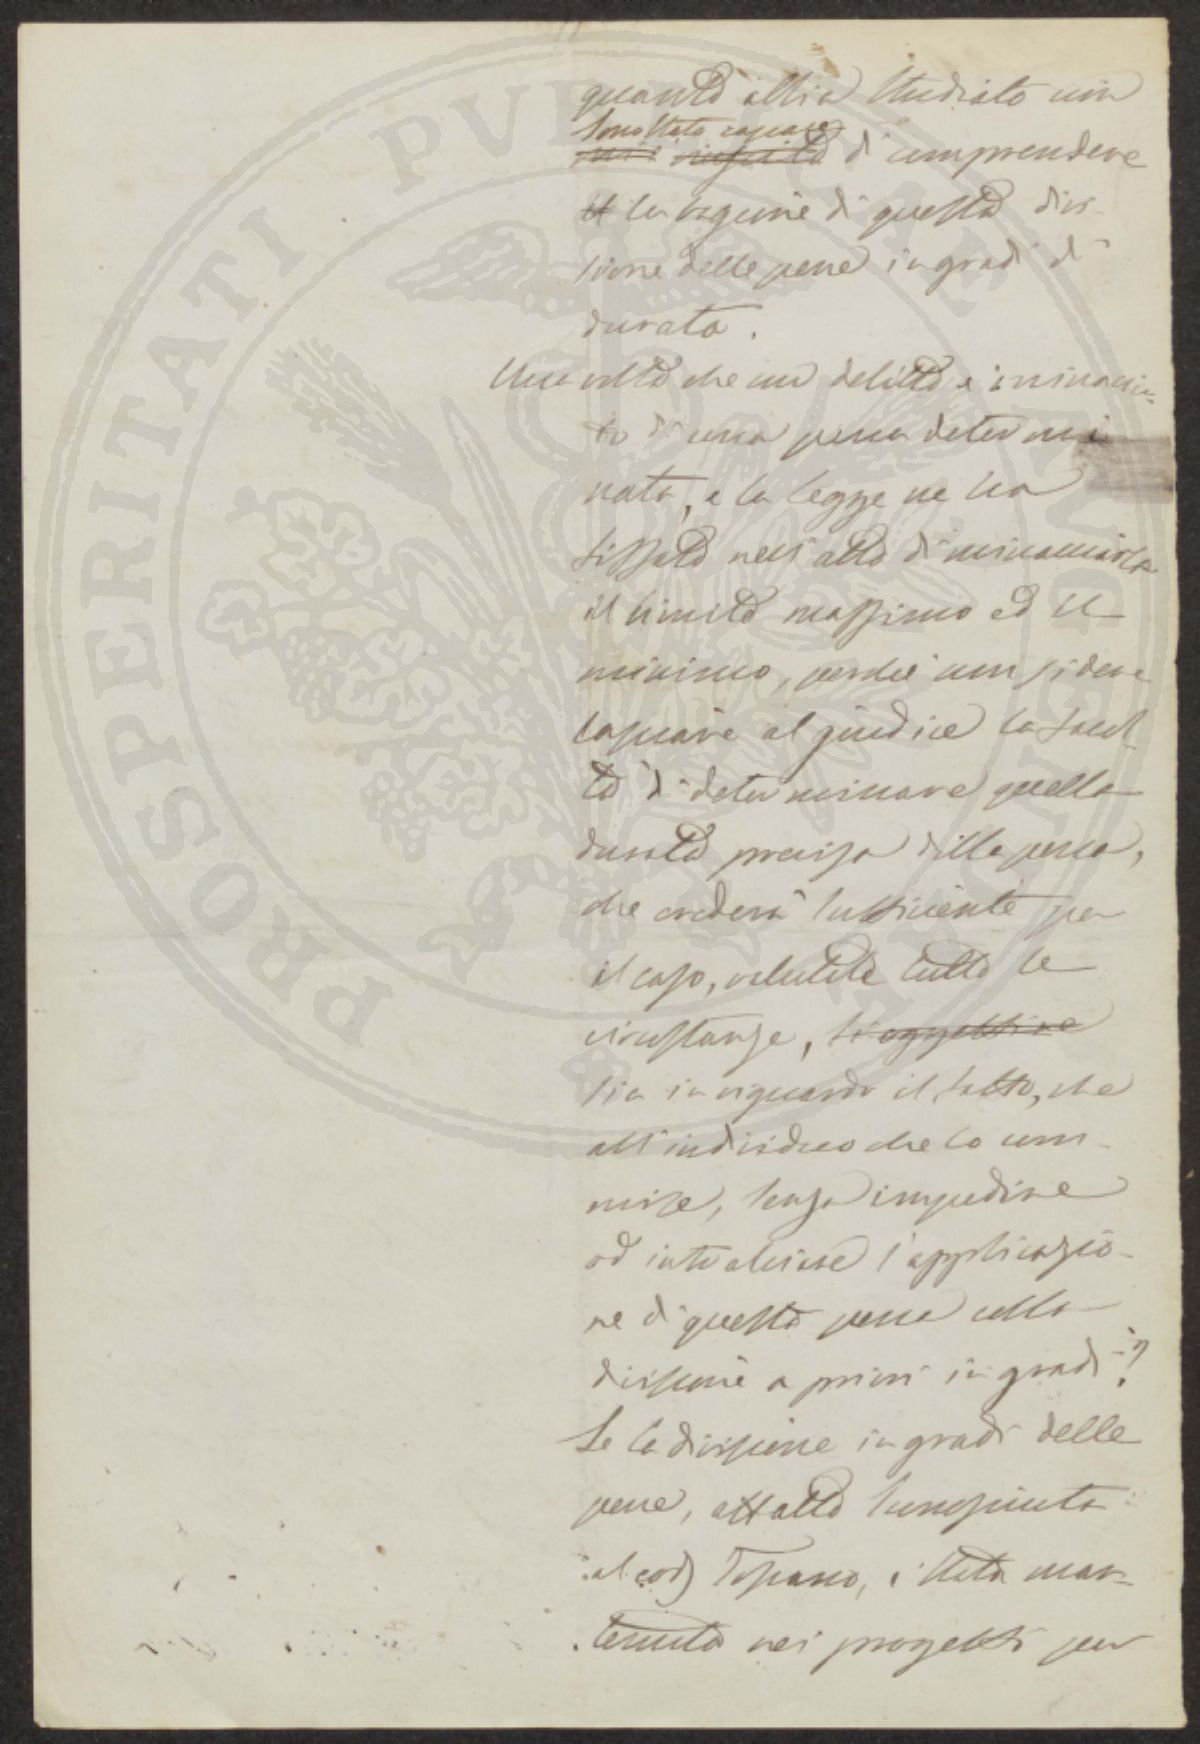 quanto abbia studiato non
sono stato capace
mi è riuscito di comprendere
la ragione di questa divi-
sione delle pene in gradi di
durata.
Una volta che un delitto è minaccia-
to di una pena determi
nata, e la legge ne ha
fissato nell'atto di minacciarla
il limite massimo ed il
minimo, perchè non si deve
lasciare al giudice la facol-
tà di determinare quella
durata precisa della pena,
che crederà sufficiente per
il caso, valutate tutte le
circostanze, si oggettive
sia in riguardo il fatto, che
all'individuo che lo com-
mise, senza impedire
od intralciare l'applicazio-
ne di questa pena colla
divisione a priori in gradi?
Se la divisione in gradi delle
pene, affatto sconosciuta
al cod) Toscano, è stata man-
tenuta nei progetti per
PROSPERITATI PVBLICAE AVGENDAE